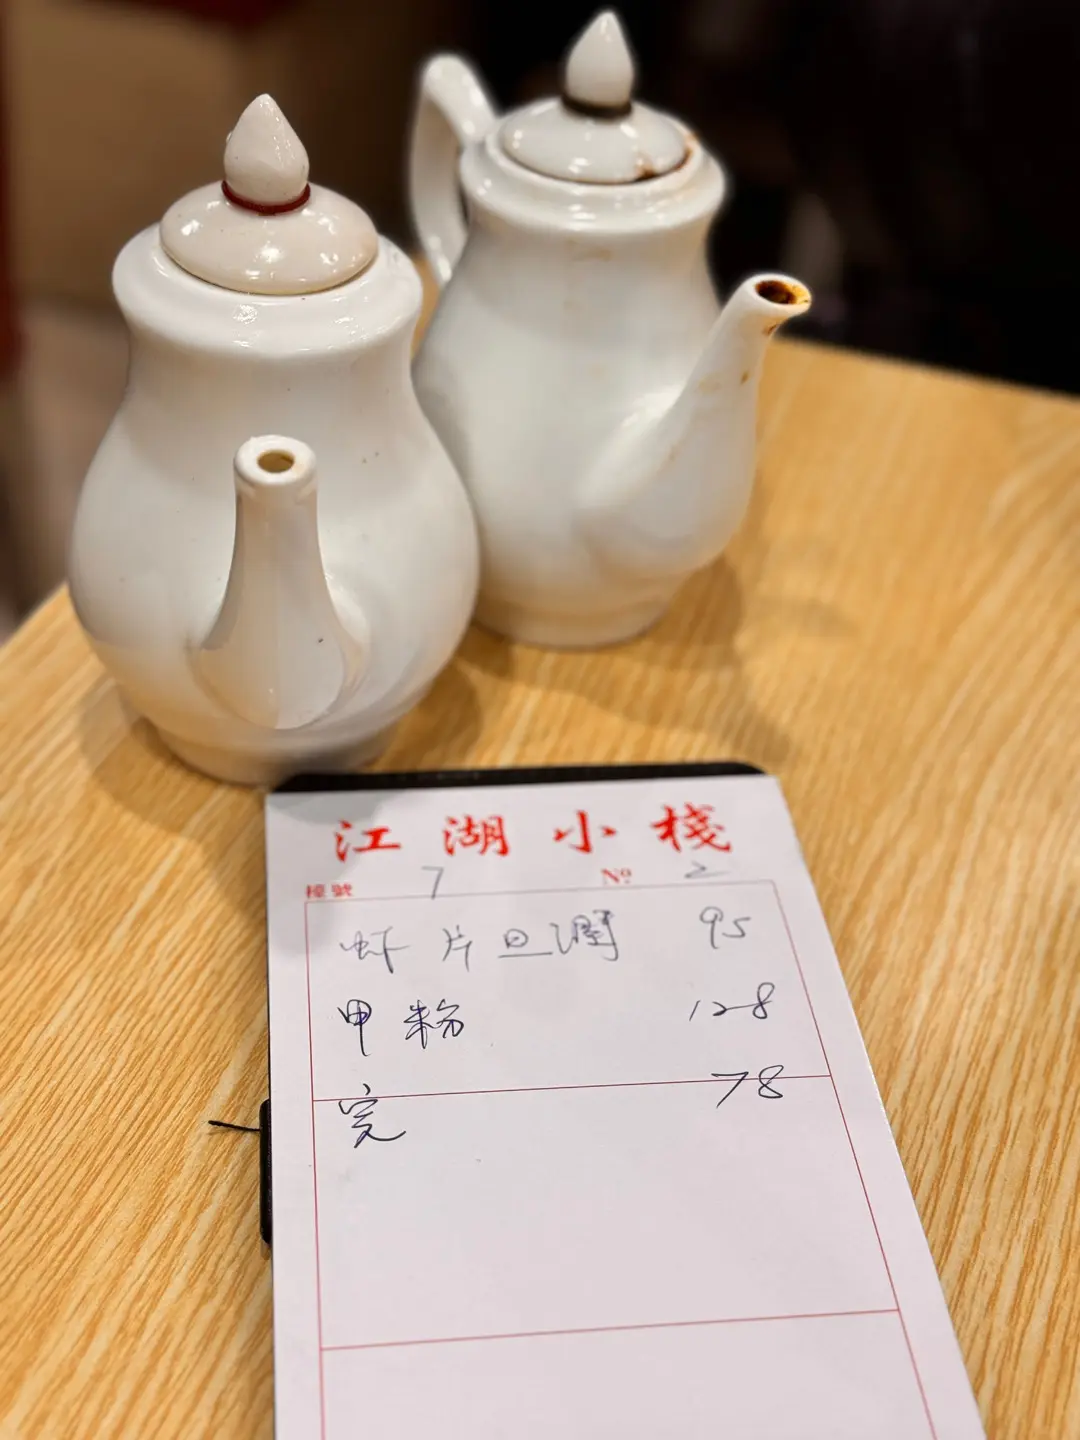 江湖小棧
檯號 7 Nº 2
虾片旦 95
甲粉 128
完 78